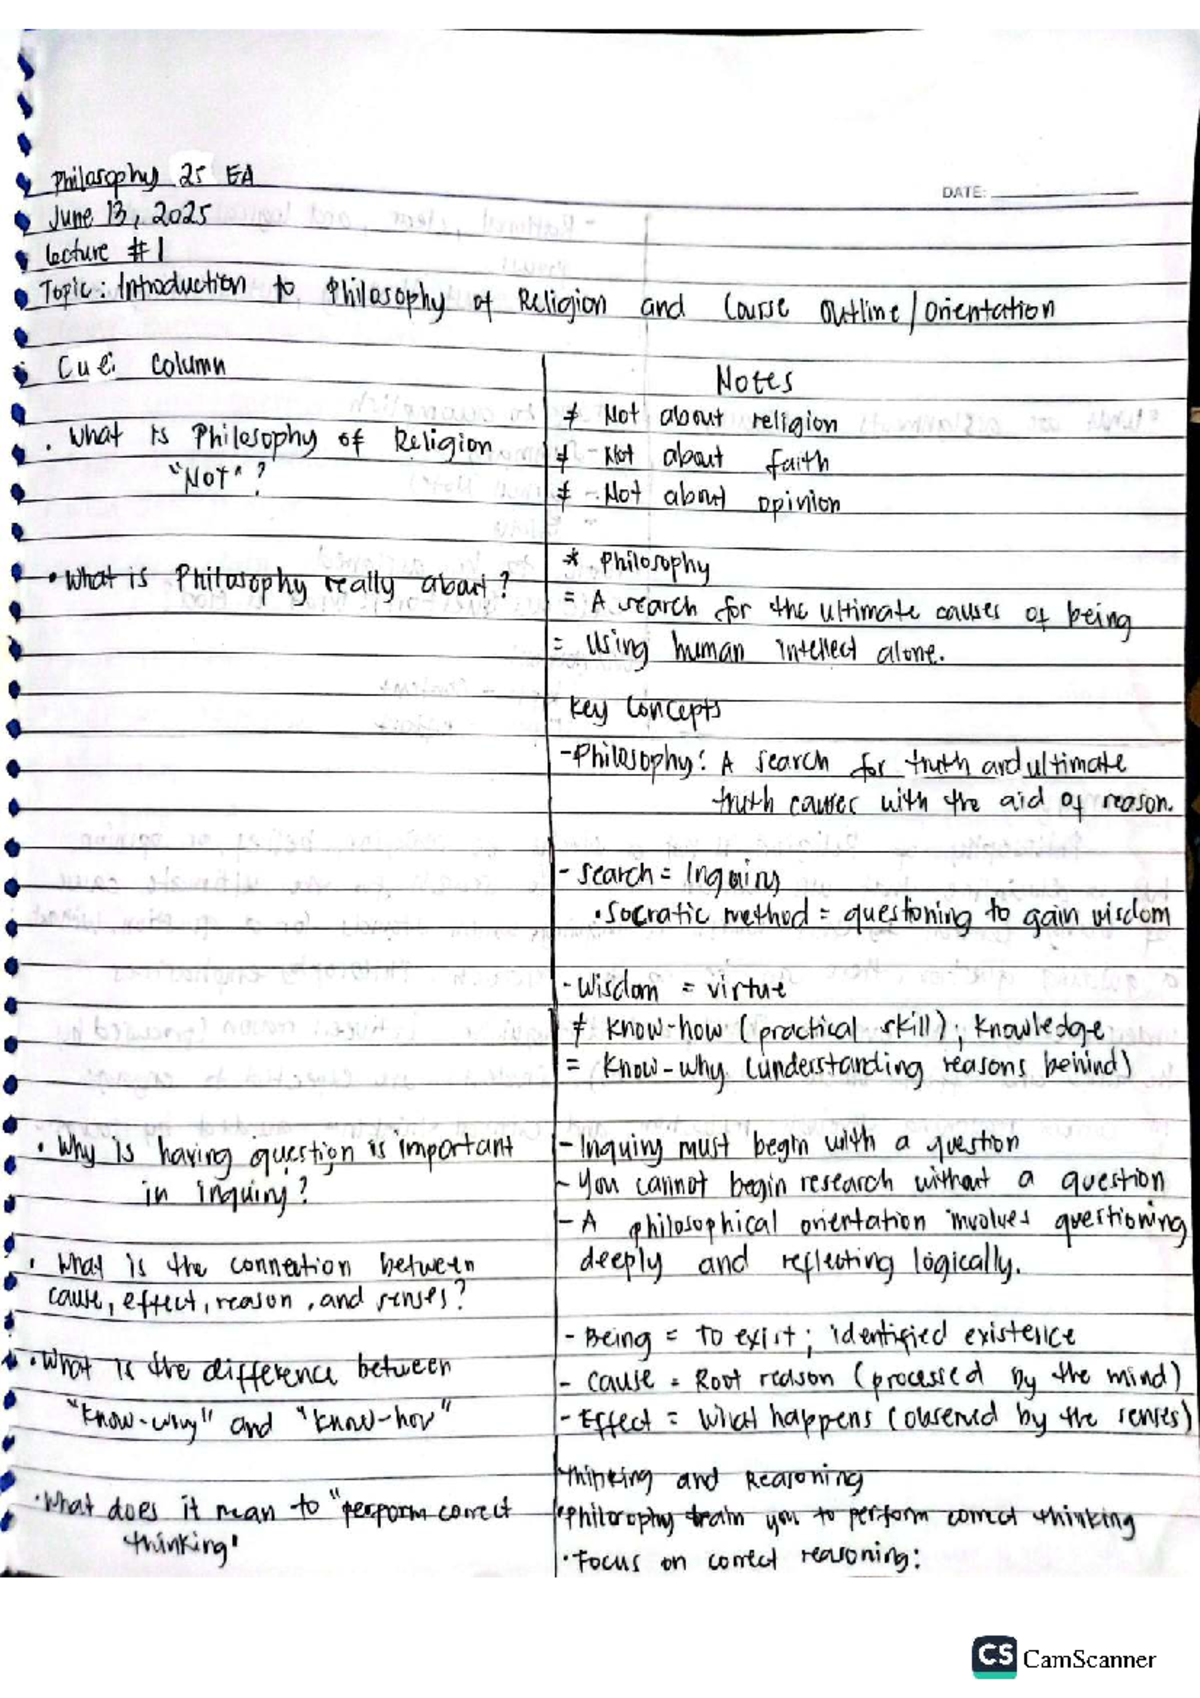 Philosophy 25 EA
DATE:
June 13, 2025
Lecture #1
Topic: Introduction to Philosophy of Religion and Course Outline/Orientation
Cue: Column
Notes
≠ Not about religion
• What is Philosophy of Religion
"Not"?
≠ Not about faith
≠ Not about opinion
* Philosophy
• What is Philosophy really about?
= A search for the ultimate causes of being
= Using human intellect alone.
Key Concepts
- Philosophy: A search for truth and ultimate
truth causes with the aid of reason.
- Search = Inquiry
• Socratic method = questioning to gain wisdom
- Wisdom = virtue
≠ Know-how (practical skill); Knowledge
= Know-why (understanding reasons behind)
• Why is having question is important
in inquiry?
- Inquiry must begin with a question
- You cannot begin research without a question
- A philosophical orientation involves questioning
deeply and reflecting logically.
• What is the connection between
cause, effect, reason, and senses?
- Being = to exist; identified existence
• What is the difference between
"Know-why" and "Know-how"
- Cause = Root reason (processed by the mind)
- Effect = What happens (observed by the senses)
Thinking and Reasoning
• What does it mean to "perform correct
thinking"
• Philosophy train you to perform correct thinking
• Focus on correct reasoning:
CS CamScanner